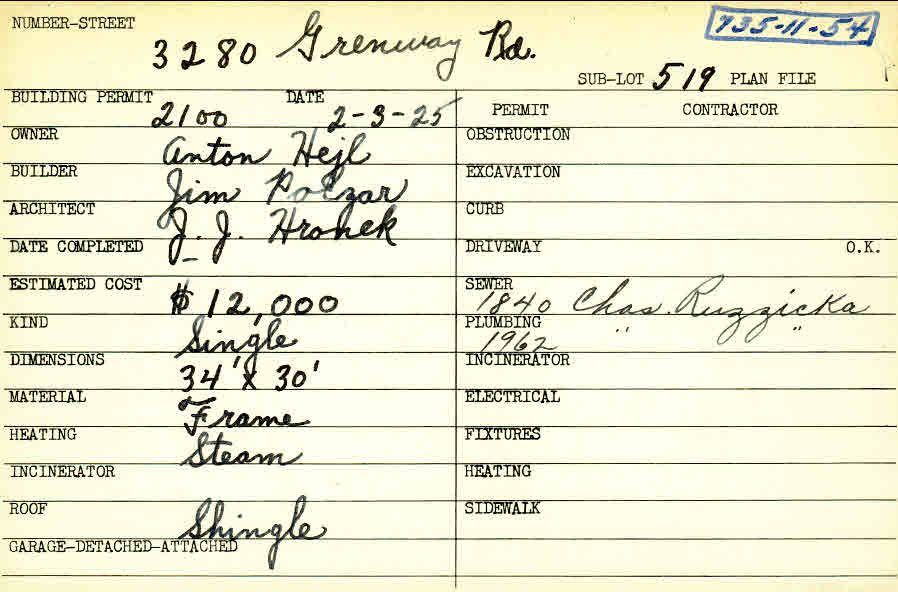 NUMBER-STREET 3280 Grenway Rd. 735-11-54
SUB-LOT 519 PLAN FILE
BUILDING PERMIT 2100 DATE 2-3-25
PERMIT CONTRACTOR
OWNER Anton Hejl
OBSTRUCTION
BUILDER Jim Polzar
EXCAVATION
ARCHITECT J. J. Hronek
CURB
DATE COMPLETED
DRIVEWAY O.K.
ESTIMATED COST $12,000
SEWER 1840 Chas. Ruzzicka
KIND Single
PLUMBING 1962 " "
DIMENSIONS 34' x 30'
INCINERATOR
MATERIAL Frame
ELECTRICAL
HEATING Steam
FIXTURES
INCINERATOR
HEATING
ROOF Shingle
SIDEWALK
GARAGE-DETACHED-ATTACHED